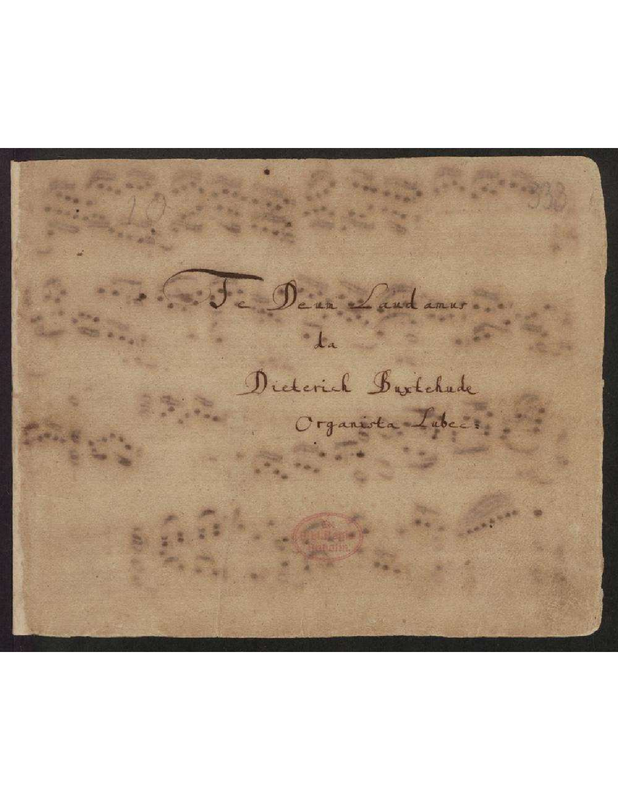 10
Te Deum Laudamus
da
Dieterich Buxtehude
Organista Lubec: